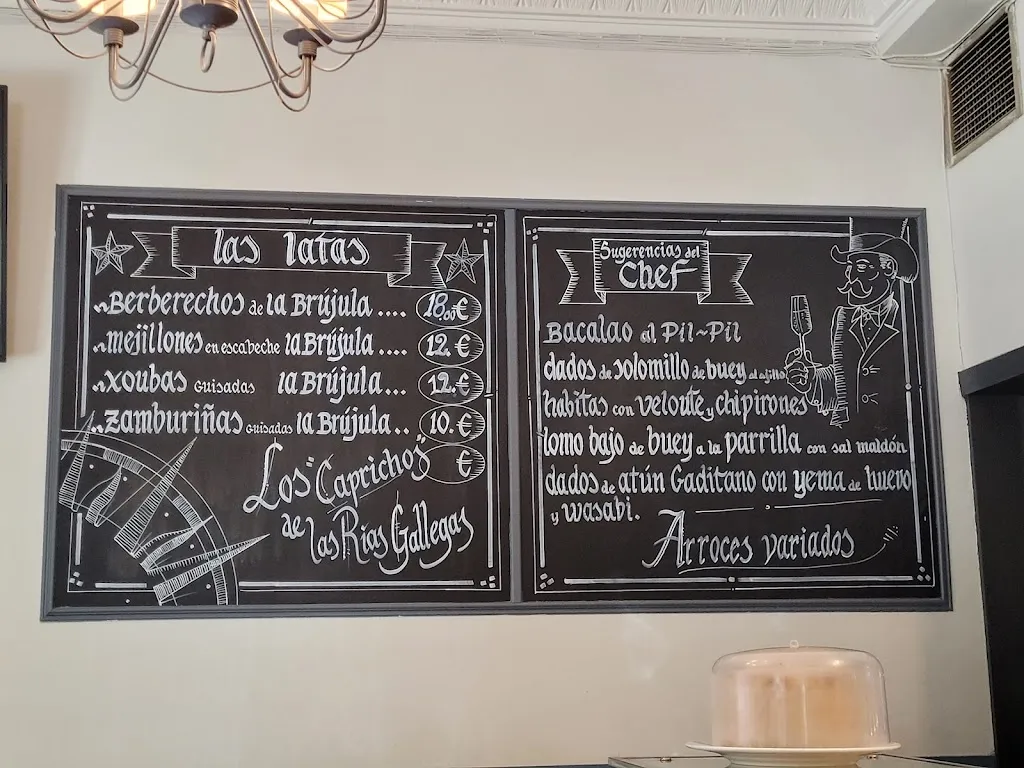 las latas
Berberechos de la Brújula .... 18.00€
mejillones en escabeche la Brújula .... 12.€
xoubas Guisadas la Brújula ... 12.€
zamburiñas Guisadas la Brújula .. 10.€
€
Los "Caprichos"
de las Rías Gallegas
Sugerencias del
Chef
Bacalao al Pil~Pil
dados de solomillo de buey al ajillo
habitas con velouté y chipirones
lomo bajo de buey a la parrilla con sal maldón
dados de atún Gaditano con yema de huevo
y wasabi.
Arroces variados